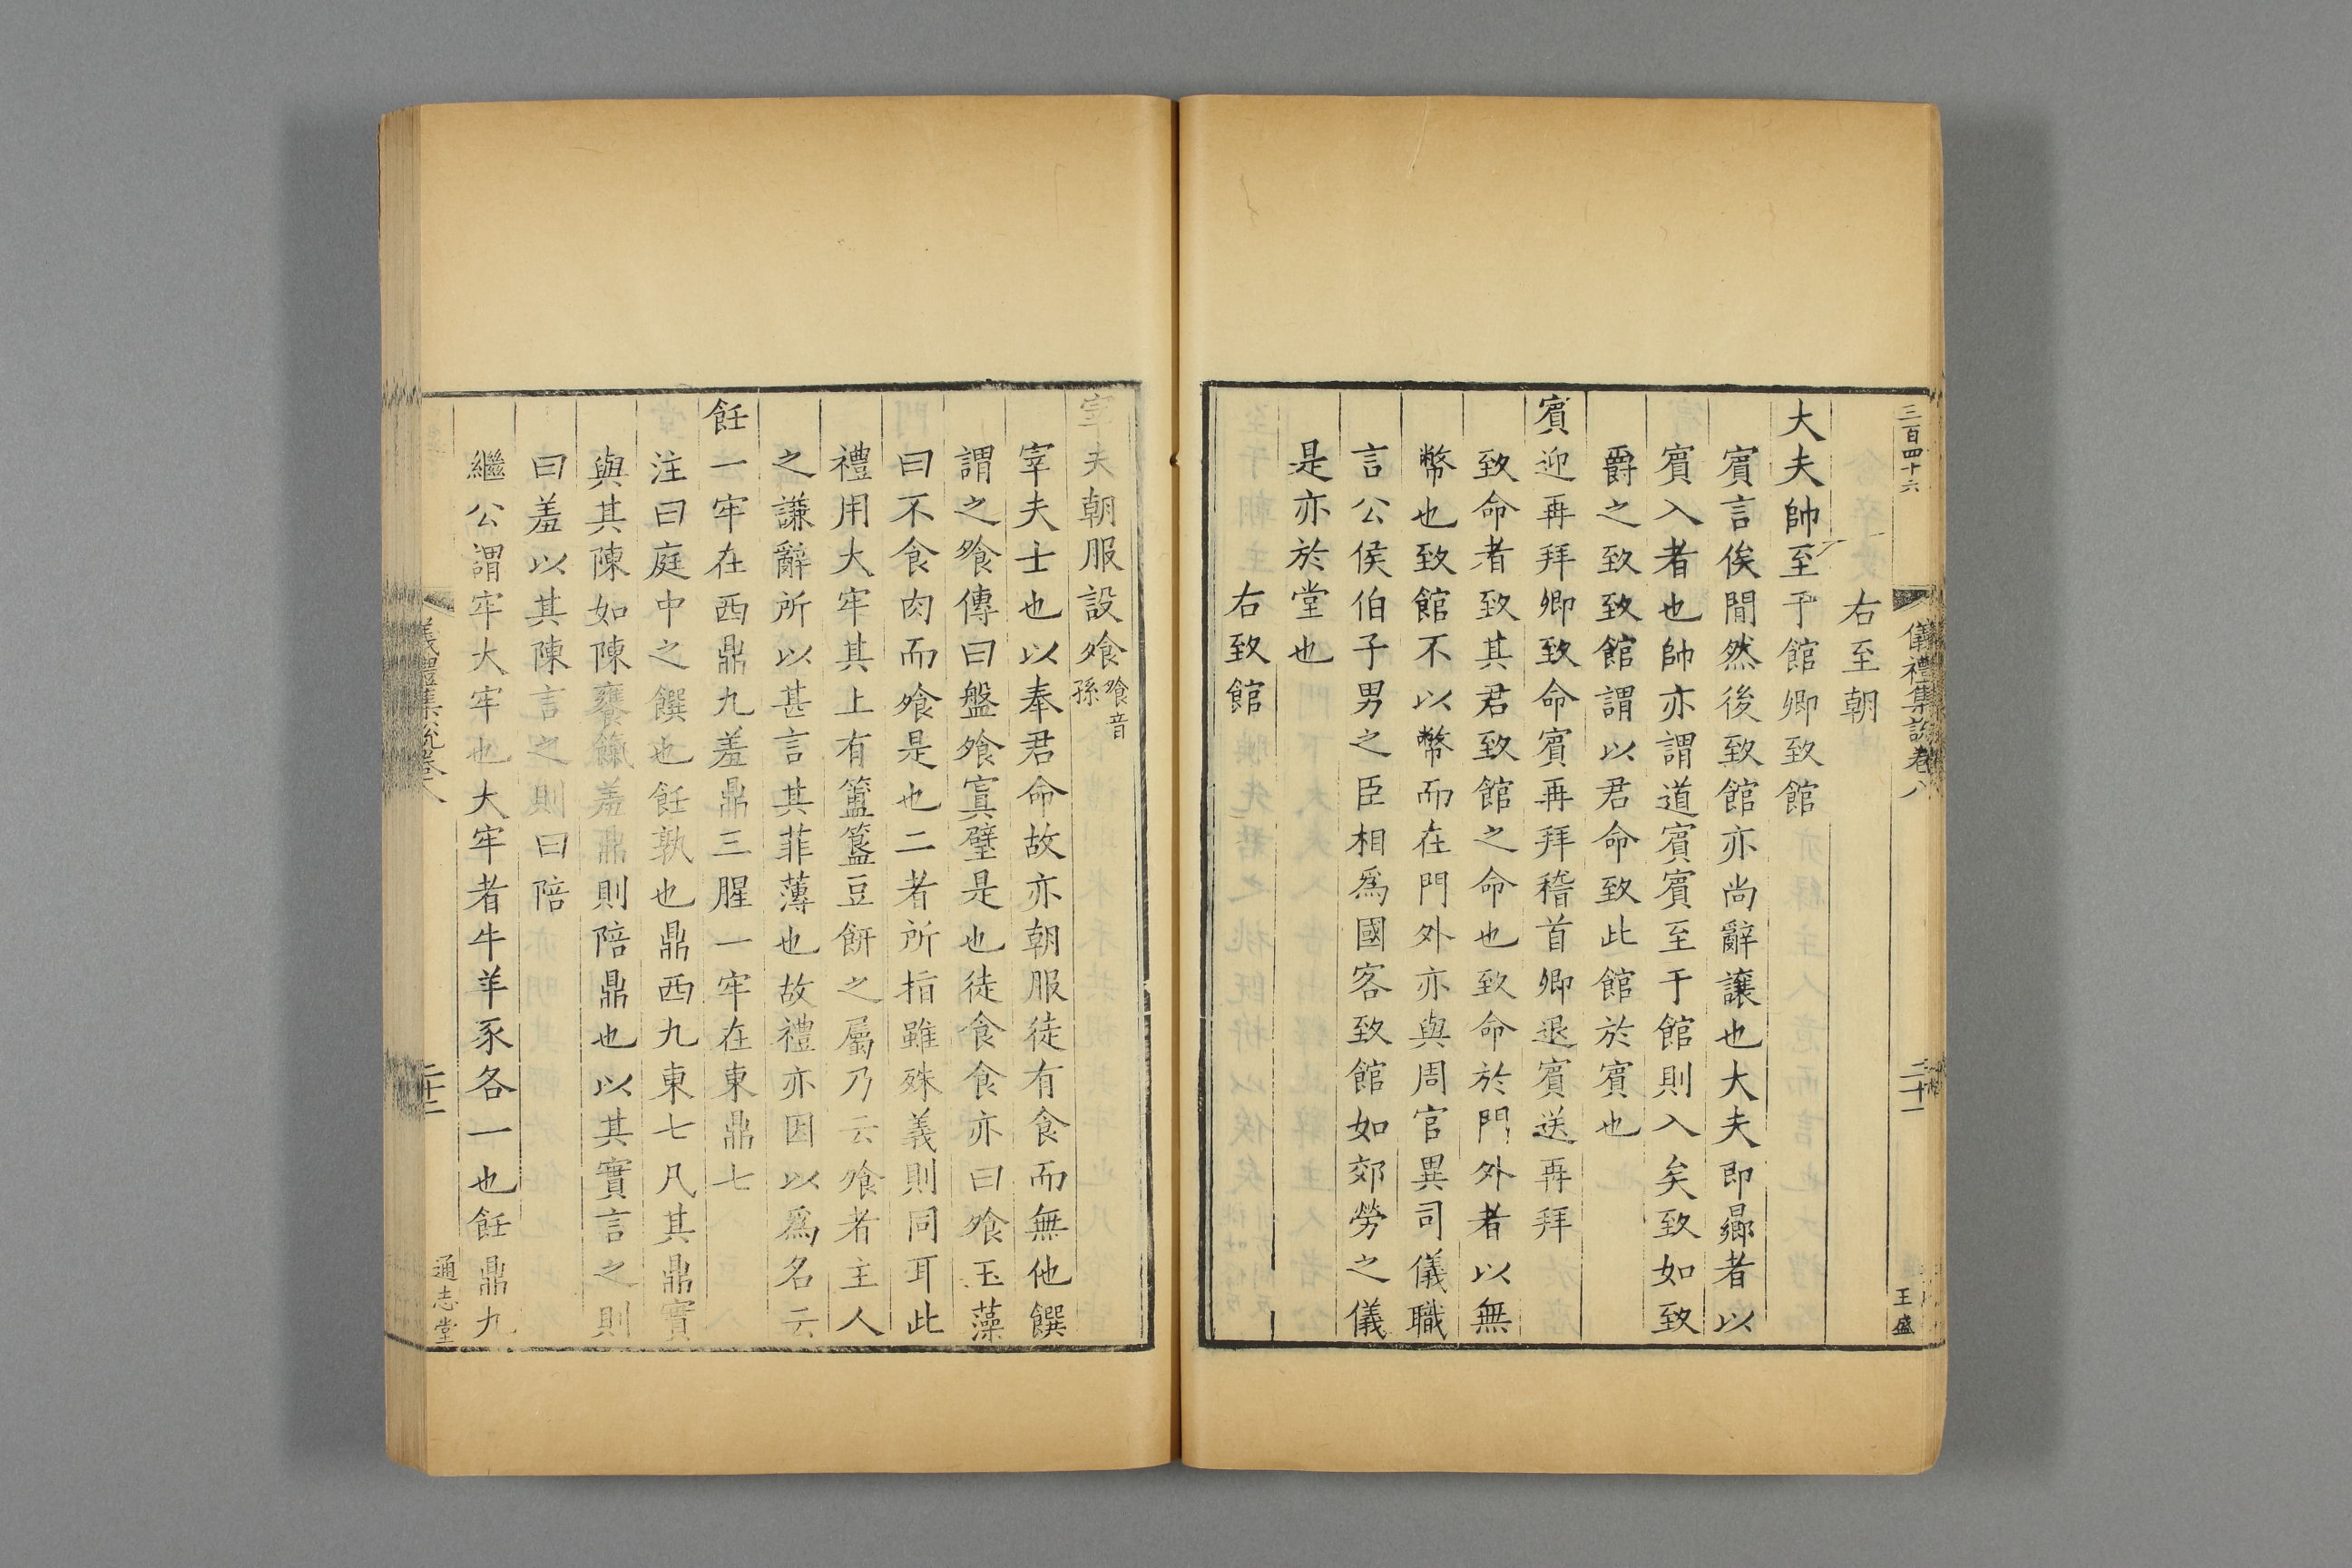 三百四十六
儀禮集說卷八
二十一
王盛
右至朝
大夫帥至于館卿致館
賔言俟閒然後致館亦尚辭讓也大夫即曏者以
賔入者也帥亦謂道賔賔至于館則入矣致如致
爵之致致館謂以君命致此館於賔也
賔迎再拜卿致命賔再拜稽首卿退賔送再拜
致命者致其君致館之命也致命於門外者以無
幣也致館不以幣而在門外亦與周官異司儀職
言公侯伯子男之臣相爲國客致館如郊勞之儀
是亦於堂也
右致館
宰夫朝服設飧飧音孫
宰夫士也以奉君命故亦朝服徒有食而無他饌
謂之飧傳曰盤飧寘璧是也徒食食亦曰飧玉藻
曰不食肉而飧是也二者所指雖殊義則同耳此
禮用大牢其上有簠簋豆鉶之屬乃云飧者主人
之謙辭所以甚言其菲薄也故禮亦因以爲名云
飪一牢在西鼎九羞鼎三腥一牢在東鼎七
注曰庭中之饌也飪孰也鼎西九東七凡其鼎實
與其陳如陳饔餼羞鼎則陪鼎也以其實言之則
曰羞以其陳言之則曰陪
繼公謂牢大牢也大牢者牛羊豕各一也飪鼎九
儀禮集說卷八
二十二
通志堂